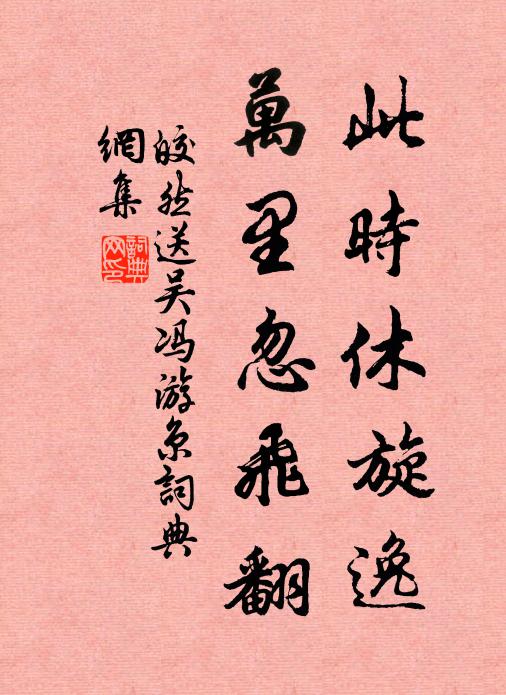 此時休旋逸
萬里忽飛翻
皎然送吴冯游京詞典
網集
詞典網印